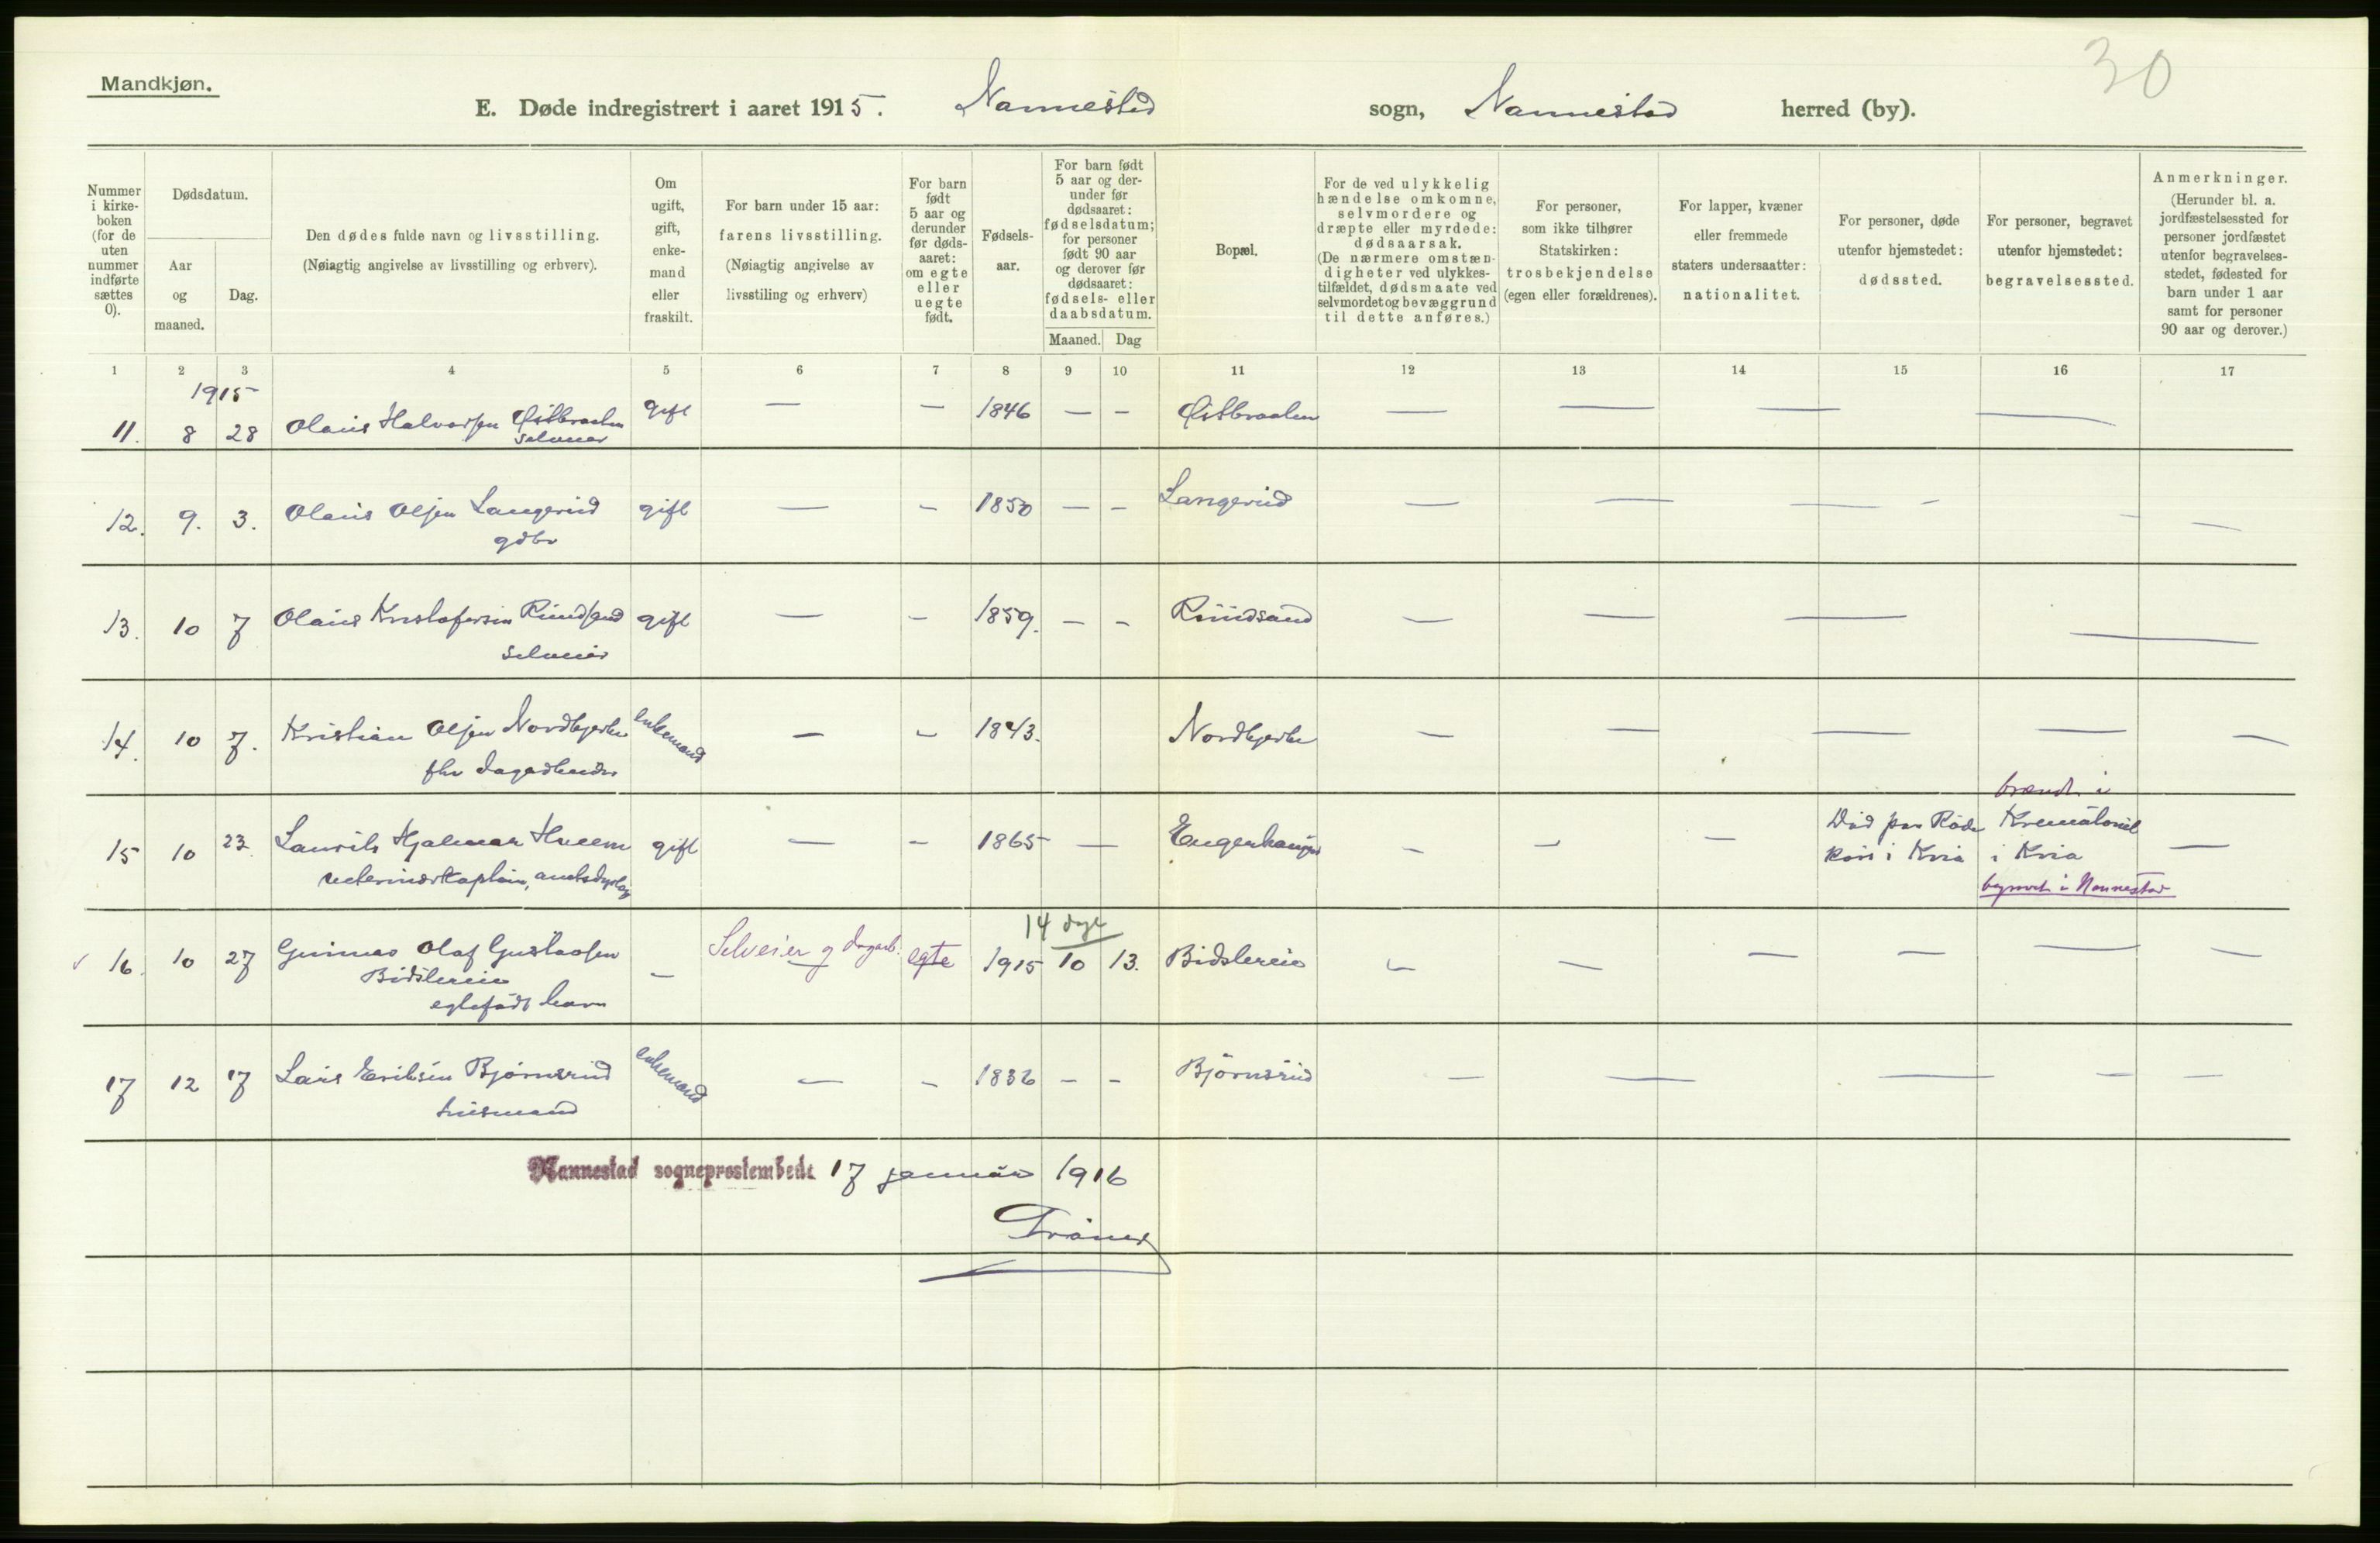 30
Mandkjøn.
E. Døde indregistrert i aaret 1915. Nannestad sogn, Nannestad herred (by).
Nummer i kirke-boken (for de uten nummer indførte sættes 0).
Dødsdatum.
Aar og maaned.
Dag.
Den dødes fulde navn og livsstilling.
(Nøiagtig angivelse av livsstilling og erhverv).
Om ugift, gift, enke-mand eller fraskilt.
For barn under 15 aar: farens livsstilling.
(Nøiagtig angivelse av livsstiling og erhverv)
For barn født 5 aar og derunder før døds-aaret: om egte eller uegte født.
Fødsels-aar.
For barn født 5 aar og der-under før dødsaaret: fødselsdatum; for personer født 90 aar og derover før dødsaaret: fødsels- eller daabsdatum.
Maaned. Dag
Bopæl.
For de ved ulykkelig hændelse omkomne, selvmordere og dræpte eller myrdede: dødsaarsak.
(De nærmere omstæn-digheter ved ulykkes-tilfældet, dødsmaate ved selvmordet og bevæggrund til dette anføres.)
For personer, som ikke tilhører Statskirken: trosbekjendelse (egen eller forældrenes).
For lapper, kvæner eller fremmede staters undersaatter: nationalitet.
For personer, døde utenfor hjemstedet: dødssted.
For personer, begravet utenfor hjemstedet: begravelsessted.
Anmerkninger.
(Herunder bl. a. jordfæstelsessted for personer jordfæstet utenfor begravelses-stedet, fødested for barn under 1 aar samt for personer 90 aar og derover.)
1 2 3 4 5 6 7 8 9 10 11 12 13 14 15 16 17
1915
11. 8 28 Olaus Halvorsen Østbraaten gift — — 1846 — — Østbraaten — — — —
selveier
12. 9. 3. Olaus Olsen Langerud gift — — 1850 — — Langerud — — — — — —
gdbr
13. 10 7 Olaus Kristofersen Rundsand gift — — 1859. — — Rundsand — — — —
selveier
14. 10 7. Kristian Olsen Nordbyeie enkemand — — 1843. Nordbyeie — — — — —
fhv dagarbeider
15 10 23. Laurits Hjalmar Hveem gift — — 1865 — Engerhaugen — — — Död paa Röde Kors i Kria brændt i Krematoriet i Kria begravet i Nannestad —
veterinærkaptein, amtsdyrlæge
14 dage
16. 10 27 Gunnar Olaf Gustavsen — Selveier og dagarb. egte 1915 10 13. Bidslereie — — — — — —
Bidslereie
egtefödt barn
17 12 17 Lars Eriksen Björnsrud enkemand — — 1836 — — Björnsrud — — — — —
husmand
Nannestad sogneprestembede 17 januar 1916